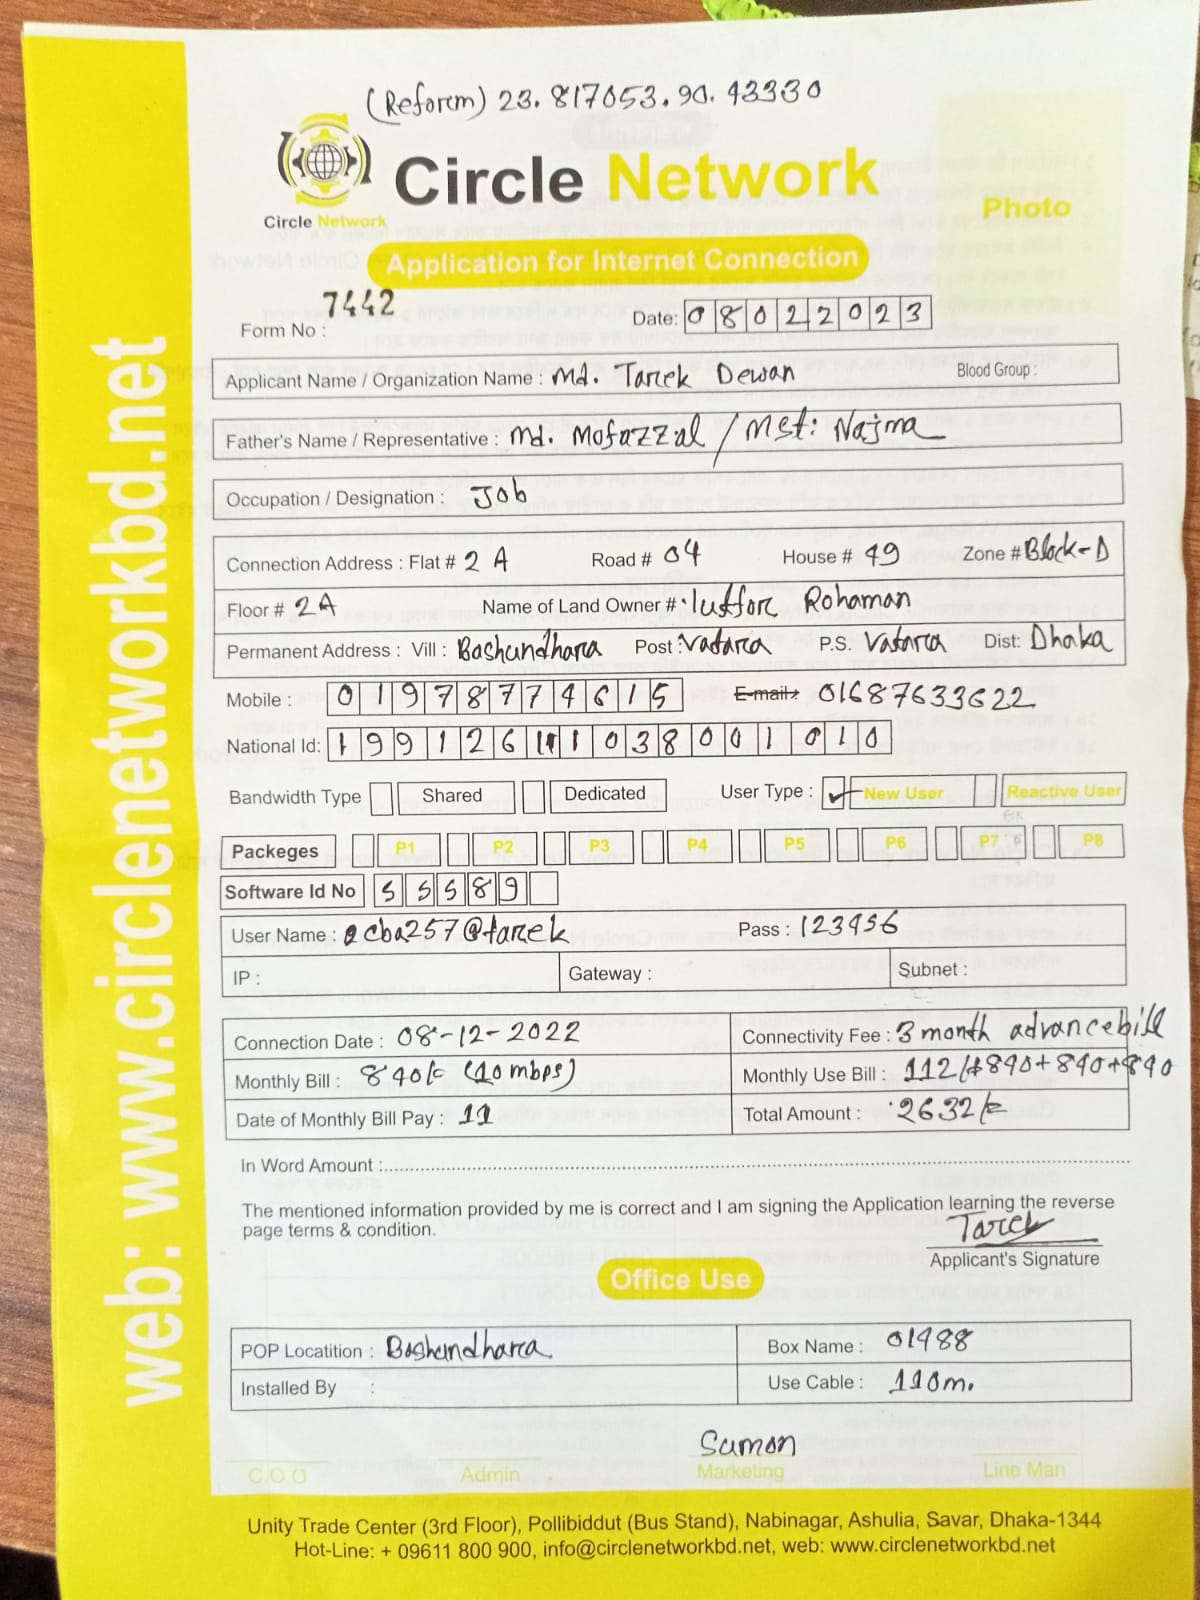 (Reform) 23.817053.90.43330
Circle Network
Circle Network
Photo
Application for Internet Connection
Form No : 7442
Date: 08022023
Applicant Name / Organization Name : Md. Tarek Dewan Blood Group :
Father's Name / Representative : Md. Mofazzal / Mst: Najma
Occupation / Designation : Job
Connection Address : Flat # 2 A Road # 04 House # 49 Zone # Block-D
Floor # 2A Name of Land Owner # lutfor Rohaman
Permanent Address : Vill : Bashundhara Post : Vatara P.S. Vatara Dist: Dhaka
Mobile : 01978774615 E-mail: 01687633622
National Id: 19912611038001010
Bandwidth Type Shared Dedicated User Type : ✓ New User Reactive User
Packeges P1 P2 P3 P4 P5 P6 P7 P8
Software Id No 55589
User Name : cba257@tarek Pass : 123456
IP : Gateway : Subnet :
Connection Date : 08-12-2022 Connectivity Fee : 3 month advance bill
Monthly Bill : 840/= (10 mbps) Monthly Use Bill : 112/+840+840+840
Date of Monthly Bill Pay : 11 Total Amount : 2632/=
In Word Amount :
The mentioned information provided by me is correct and I am signing the Application learning the reverse
page terms & condition.
Tarek
Applicant's Signature
Office Use
POP Locatition : Bashundhara Box Name : 01488
Installed By : Use Cable : 110m.
Sumon
C.O.O Admin Marketing Line Man
Unity Trade Center (3rd Floor), Pollibiddut (Bus Stand), Nabinagar, Ashulia, Savar, Dhaka-1344
Hot-Line: + 09611 800 900, info@circlenetworkbd.net, web: www.circlenetworkbd.net
web: www.circlenetworkbd.net